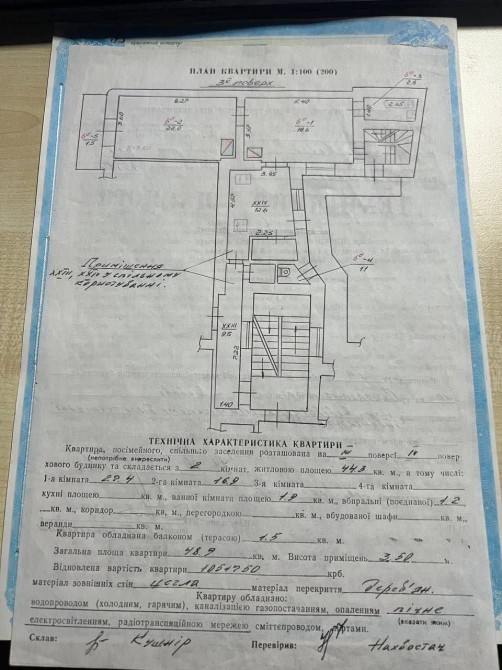 ПЛАН КВАРТИРИ М. 1:100 (200)
3й поверх
6.27
3.60
6а-2
22,0
5.40
6а-1
18,6
6а-3
2.6
1.40
6а-5
1.5
3.45
4.52
XXIV
12.6
2.25
6а-4
1.1
Приміщення
XXIII, XXIV у спільному
користуванні.
XXIII
9.5
7.22
1.40
ТЕХНІЧНА ХАРАКТЕРИСТИКА КВАРТИРИ
Квартира, посімейного, спільного заселення розташована на III поверсі IV повер
(непотрібне викреслити)
хового будинку та складається з 2 кімнат, житловою площею 44,3 кв. м., в тому числі:
1-а кімната 27.4 2-га кімната 16,9 3-я кімната 4-та кімната
кухні площею кв. м., ванної кімната площею 1.9 кв. м., вбиральні (поєднаної) 1.2
кв. м., коридор кв. м., перегородкою кв. м., вбудованої шафи кв. м.,
веранди кв. м.
Квартира обладнана балконом (терасою) 1.5 кв. м.
Загальна площа квартири 48.9 кв. м. Висота приміщень 3,50 м.
Відновлена вартість квартири 1051750 крб.
матеріал зовнішніх стін цегла матеріал перекриття Дерев'ян.
Квартиру обладнано:
водопроводом (холодним, гарячим), каналізацією газопостачанням, опаленням пічне
(вказати яким)
електросвітленням, радіотрансляційною мережею сміттєпроводом, ліфтами.
Склав: Кушнір Перевірив: Нахвостач